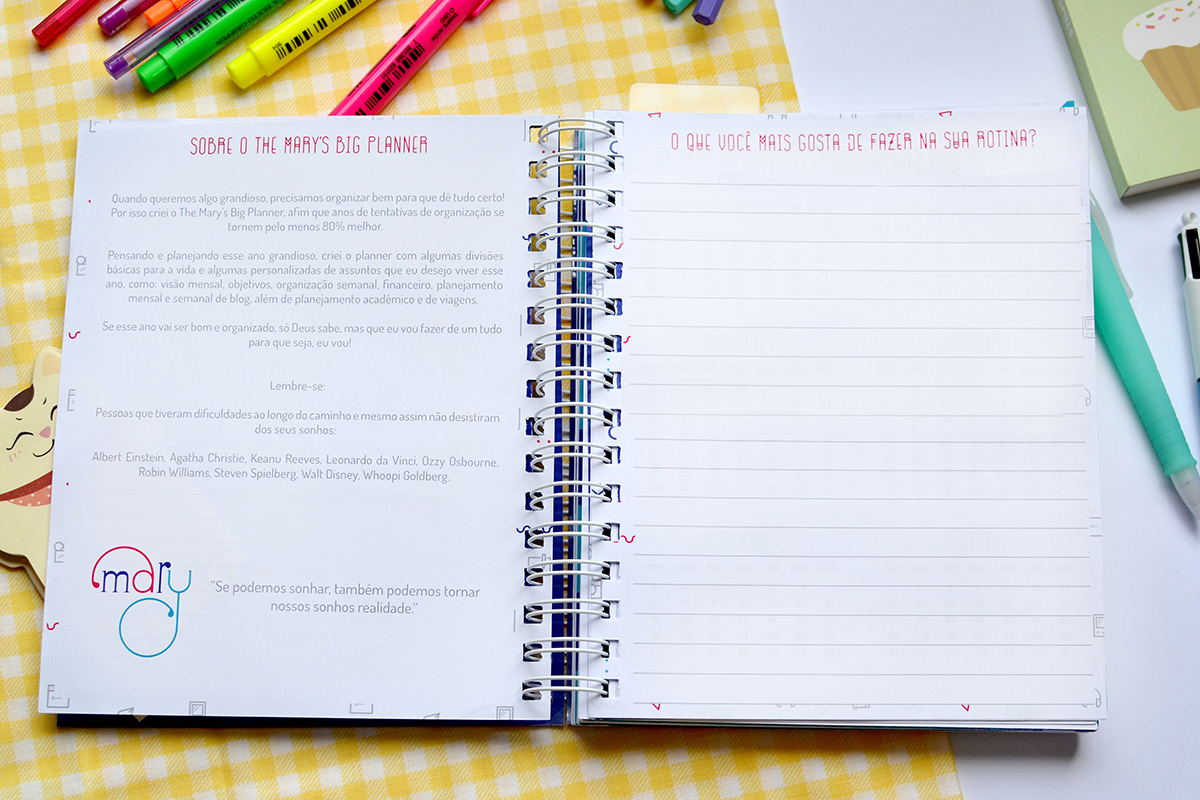 SOBRE O THE MARY'S BIG PLANNER
Quando queremos algo grandioso, precisamos organizar bem para que dê tudo certo!
Por isso criei o The Mary's Big Planner, afim que anos de tentativas de organização se
tornem pelo menos 80% melhor.
Pensando e planejando esse ano grandioso, criei o planner com algumas divisões
básicas para a vida e algumas personalizadas de assuntos que eu desejo viver esse
ano, como: visão mensal, objetivos, organização semanal, financeiro, planejamento
mensal e semanal de blog, além de planejamento acadêmico e de viagens.
Se esse ano vai ser bom e organizado, só Deus sabe, mas que eu vou fazer de um tudo
para que seja, eu vou!
Lembre-se:
Pessoas que tiveram dificuldades ao longo do caminho e mesmo assim não desistiram
dos seus sonhos:
Albert Einstein, Agatha Christie, Keanu Reeves, Leonardo da Vinci, Ozzy Osbourne,
Robin Williams, Steven Spielberg, Walt Disney, Whoopi Goldberg.
mary
"Se podemos sonhar, também podemos tornar
nossos sonhos realidade."
O QUE VOCÊ MAIS GOSTA DE FAZER NA SUA ROTINA?